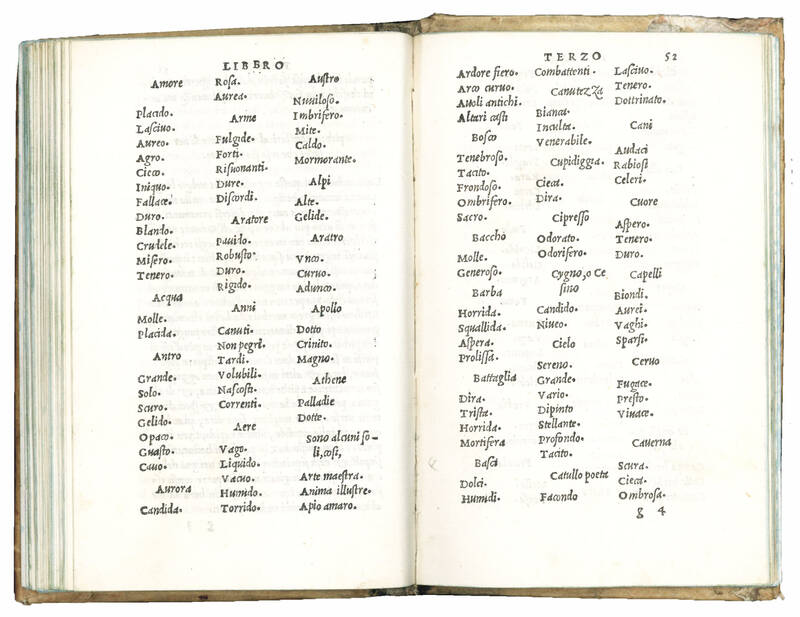 LIBRO
Amore
Placido.
Lasciuo.
Aureo.
Agro.
Cieco.
Iniquo.
Fallace.
Duro.
Blando.
Crudele.
Misero.
Tenero.
Acqua
Molle.
Placida.
Antro
Grande.
Solo.
Scuro.
Gelido.
Opaco.
Guasto.
Cauo.
Aurora
Candida.
Rosa.
Aurea.
Arme
Fulgide.
Forti.
Risuonanti.
Dure.
Discordi.
Aratore
Pauido.
Robusto.
Duro.
Rigido.
Anni
Canuti.
Non pegri.
Tardi.
Volubili.
Nascosti.
Correnti.
Aere
Vago.
Liquido.
Vacuo.
Humido.
Torrido.
Austro
Nuuiloso.
Imbrifero.
Mite.
Caldo.
Mormorante.
Alpi
Alte.
Gelide.
Aratro
Vnco.
Curuo.
Adunco.
Apollo
Dotto
Crinito.
Magno.
Athene
Palladie
Dotte.
Sono alcuni so-
li, cosi,
Arte maestra.
Anima illustre.
Apio amaro.
TERZO 52
Ardore fiero.
Arco curuo.
Auoli antichi.
Altari casti
Bosco
Tenebroso.
Tacito.
Frondoso.
Ombrifero.
Sacro.
Baccho
Molle.
Generoso.
Barba
Horrida.
Squallida.
Aspera.
Prolissa.
Battaglia
Dira.
Trista.
Horrida.
Mortifera
Basci
Dolci.
Humidi.
Combattenti.
Canutezza
Bianca.
Inculta.
Venerabile.
Cupidiggia.
Cieca.
Dira.
Cipresso
Odorato.
Odorifero.
Cygno, o Ce
sino
Candido.
Niueo.
Cielo
Sereno.
Grande.
Vario.
Dipinto
Stellante.
Profondo.
Tacito.
Catullo poeta
Facondo
Lasciuo.
Tenero.
Dottrinato.
Cani
Audaci
Rabiosi
Celeri.
Cuore
Aspero.
Tenero.
Duro.
Capelli
Biondi.
Aurei.
Vaghi.
Sparsi.
Ceruo
Fugace.
Presto.
Viuace.
Cauerna
Scura.
Cieca.
Ombrosa.
g 4